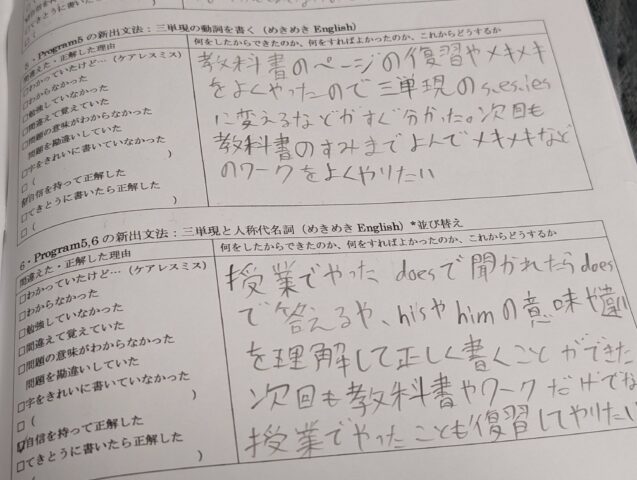 5・Program5 の新出文法：三単現の動詞を書く（めきめき English）
間違えた・正解した理由
何をしたからできたのか、何をすればよかったのか、これからどうするか
□わかっていたけど…（ケアレスミス）
□わからなかった
□勉強していなかった
□間違えて覚えていた
□問題の意味がわからなかった
問題を勘違いしていた
□字をきれいに書いていなかった
□（　　　　　　　　　）
自信を持って正解した
□てきとうに書いたら正解した
□（　　　　　　　　　）
教科書のページの復習やメキメキ
をよくやったので三単現のs,es,ies
に変えるなどがすぐ分かった。次回も
教科書のすみまでよんでメキメキなど
のワークをよくやりたい
6・Program5,6 の新出文法：三単現と人称代名詞（めきめき English）*並び替え
間違えた・正解した理由
何をしたからできたのか、何をすればよかったのか、これからどうするか
□わかっていたけど…（ケアレスミス）
□わからなかった
□勉強していなかった
□間違えて覚えていた
□問題の意味がわからなかった
問題を勘違いしていた
□字をきれいに書いていなかった
□（　　　　　　　　　）
自信を持って正解した
□てきとうに書いたら正解した
□（　　　　　　　　　）
授業でやった doesで聞かれたらdoes
で答えるや、hisやhimの意味や違い
を理解して正しく書くことができた
次回も教科書やワークだけでな
授業でやったことも復習してやりたい